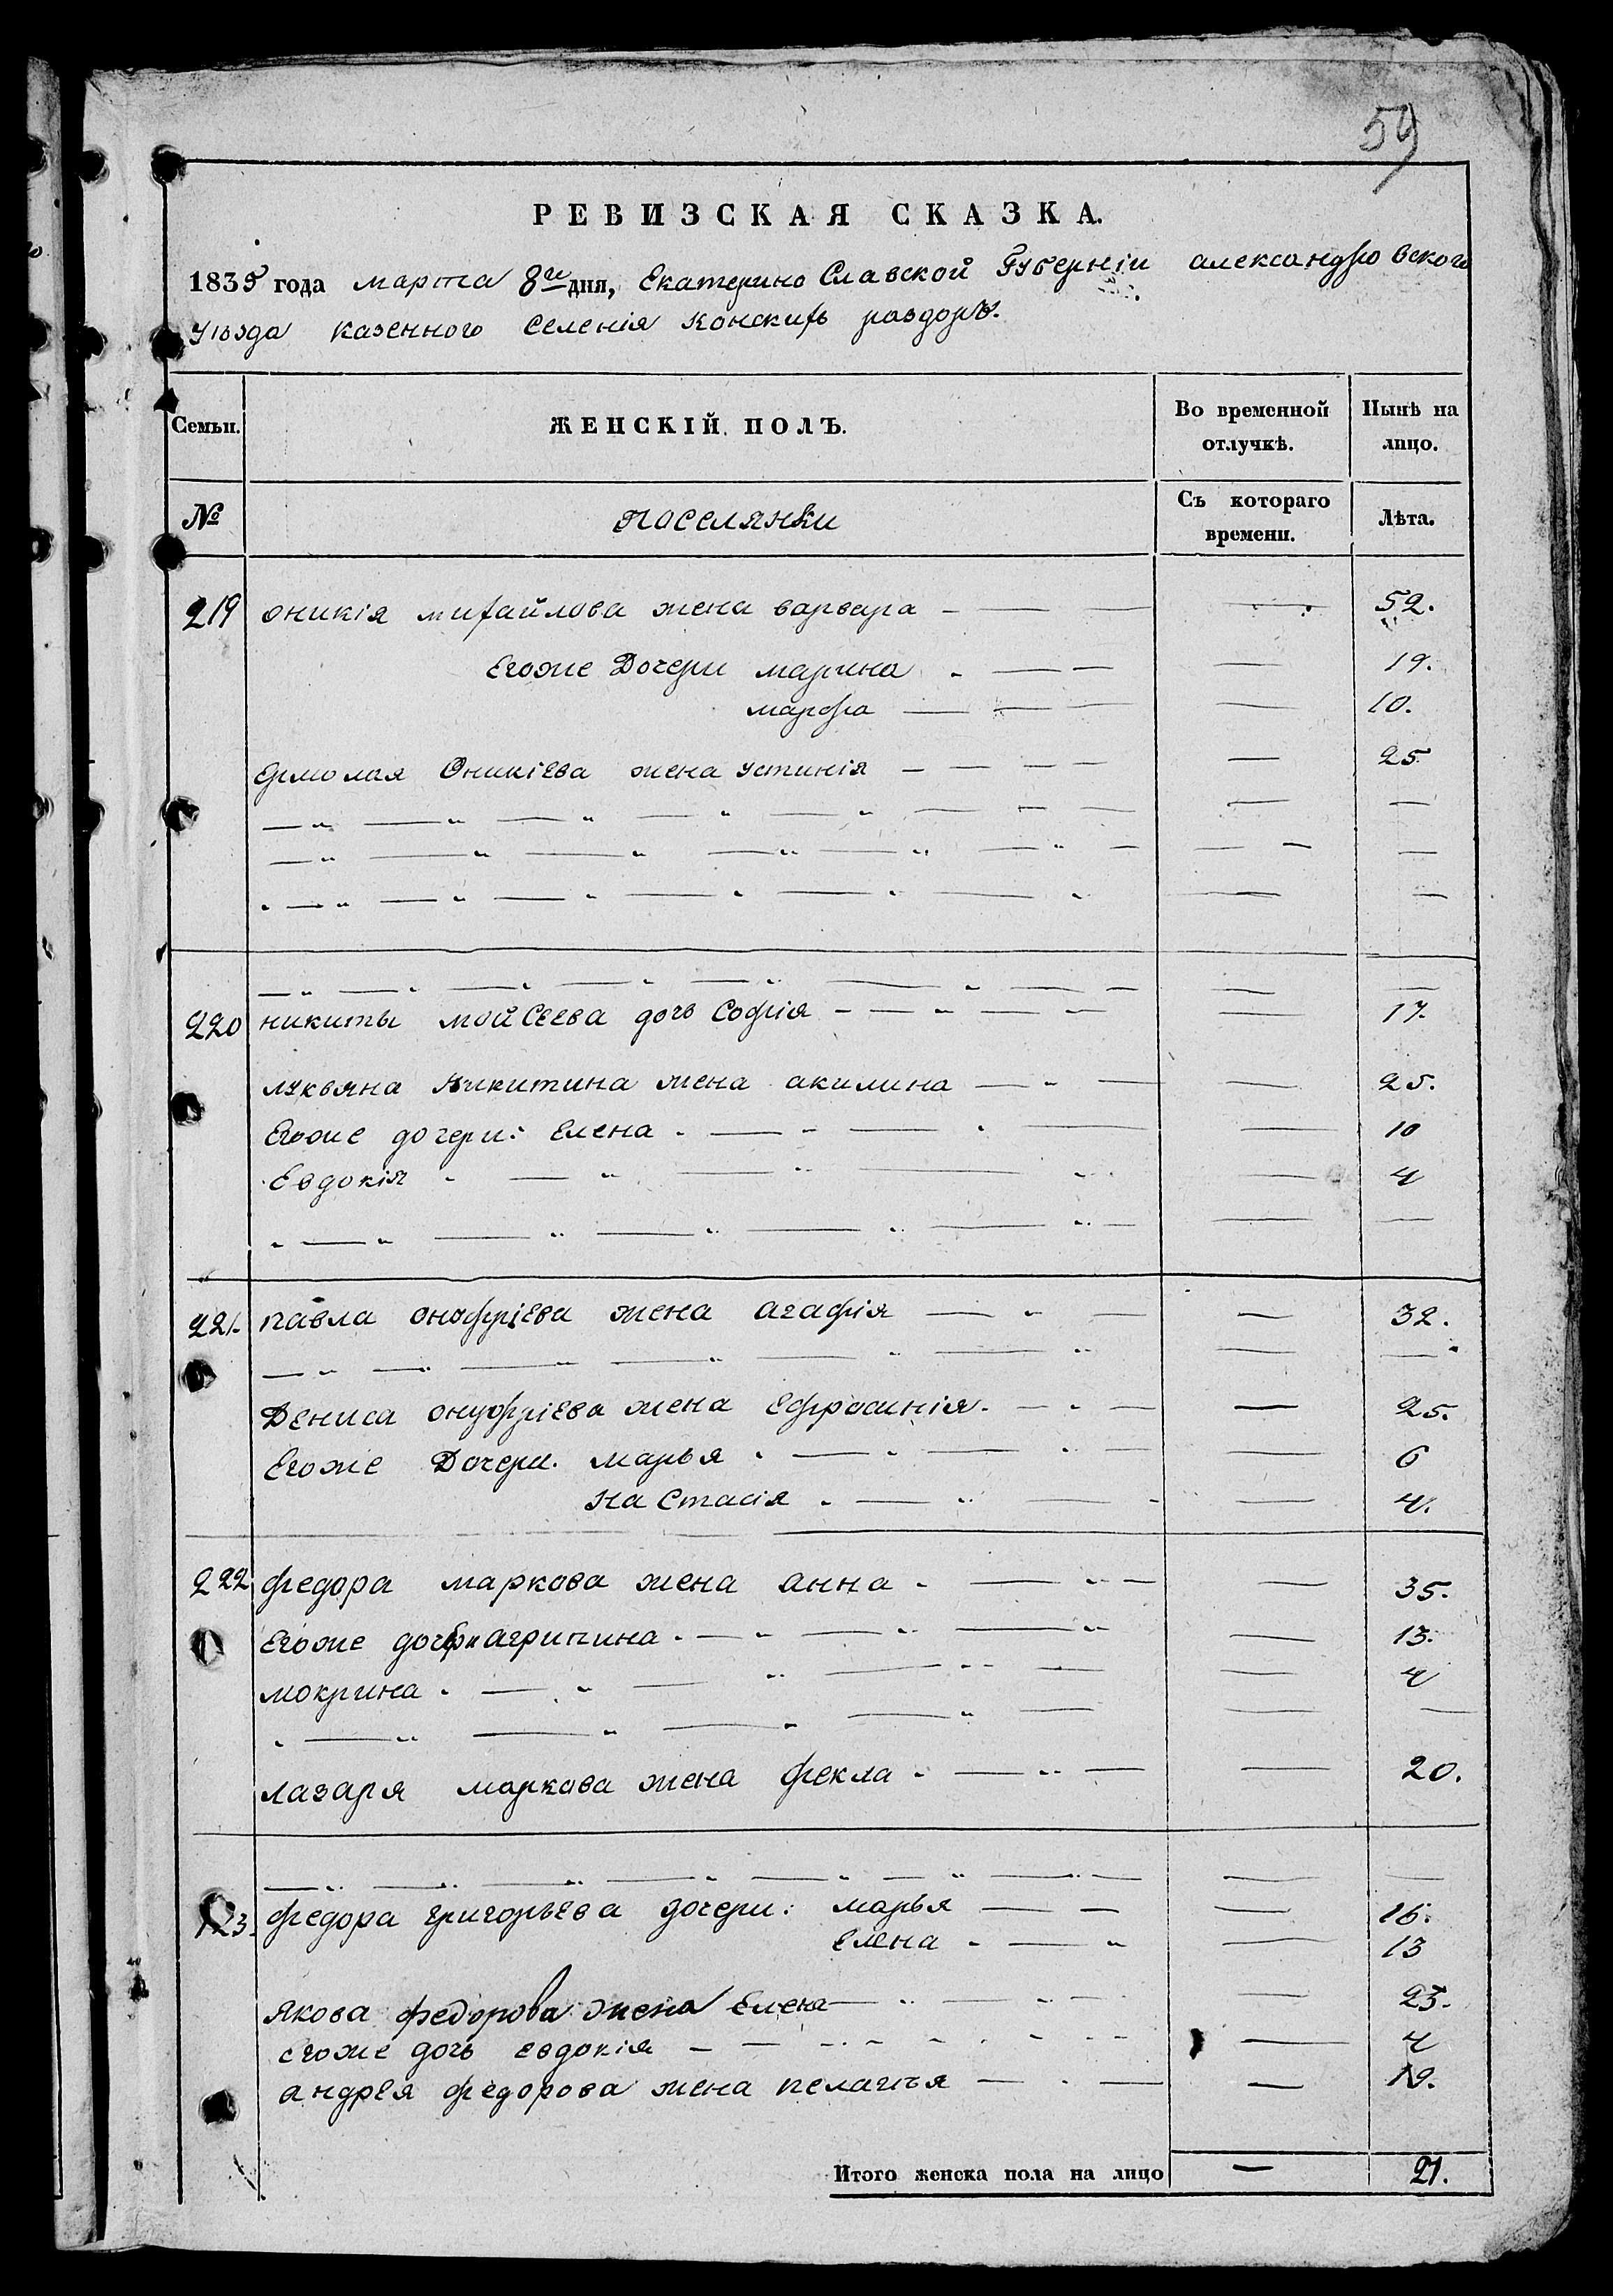 59
РЕВИЗСКАЯ СКАЗКА.
1835 года марта 8го дня, Екатерино Славской Губерніи александровского
уѣзда казенного селенія Конскихъ раздоръ.
Семьи. ЖЕНСКІЙ ПОЛЪ. Во временной отлучкѣ. Нынѣ на лицо.
№ поселянки Съ котораго времени. Лѣта.
219 оникія михайлова жена варвара — — — 52.
Егоже Дочери марина — — — 19.
марфа — — — — 10.
Ермолая Оникіева жена устинія — — — — — 25
220 никиты мойсеева дочь Софія — — — — — 17.
лукьяна Никитина жена акилина — — — 25.
Егоже дочери: Елена — — — — 10
Евдокія — — — — 4
221. павла онофріева жена агафія — — — 32.
Дениса онуфріева жена Ефросинія. — — — 25.
Егоже Дочери. марья — — — — 6
На Стасія — — — 4.
222 федора маркова жена анна — — — 35.
Егоже дочери агрипина — — — — 13.
мокрина — — — — — 4
лазаря маркова жена фекла — — — 20.
223. федора григорьева дочери: марья — — — 16.
Елена — — 13
Якова федорова жена Елена — — — 23.
егоже дочь евдокія — — — — — 4
андрея федорова жена пелагія — — — 19.
Итого женска пола на лицо — 21.